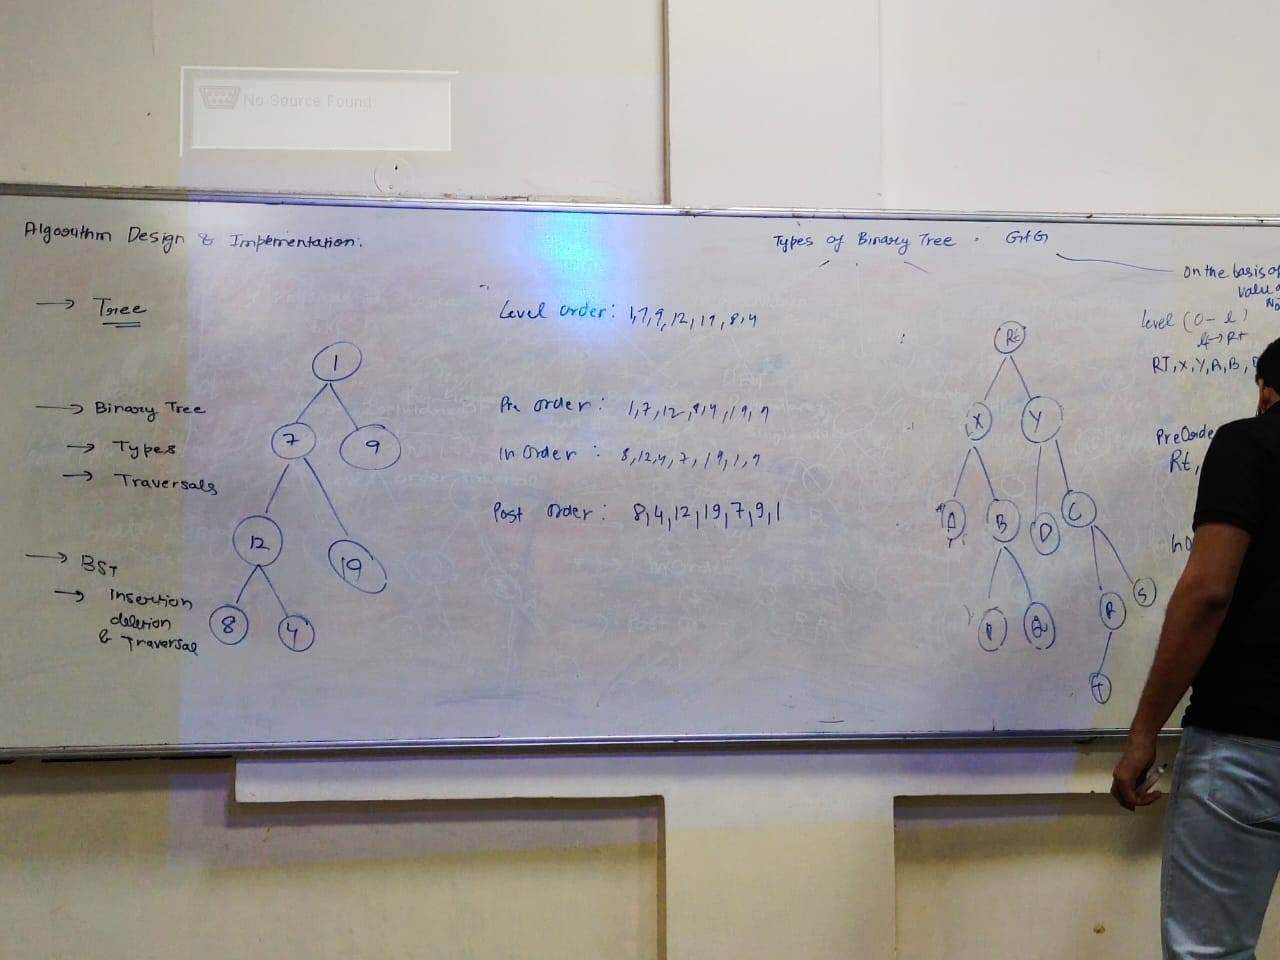 No Source Found
Algorithm Design & Implementation:
→ Tree
→ Binary Tree
→ Types
→ Traversals
→ BST
→ Insertion
deletion
& Traversal
1
7
9
12
19
8
4
Level order: 1,7,9,12,19,8,4
Pre order: 1,7,12,8,4,19,9
In order: 8,12,4,7,19,1,9
Post order: 8,4,12,19,7,9,1
Types of Binary Tree. GfG
On the basis of
value
Rt
X
Y
A
B
D
C
P
Q
R
S
T
level (0-l)
lf→Rt
RT,X,Y,A,B,
PreOrde
Rt,